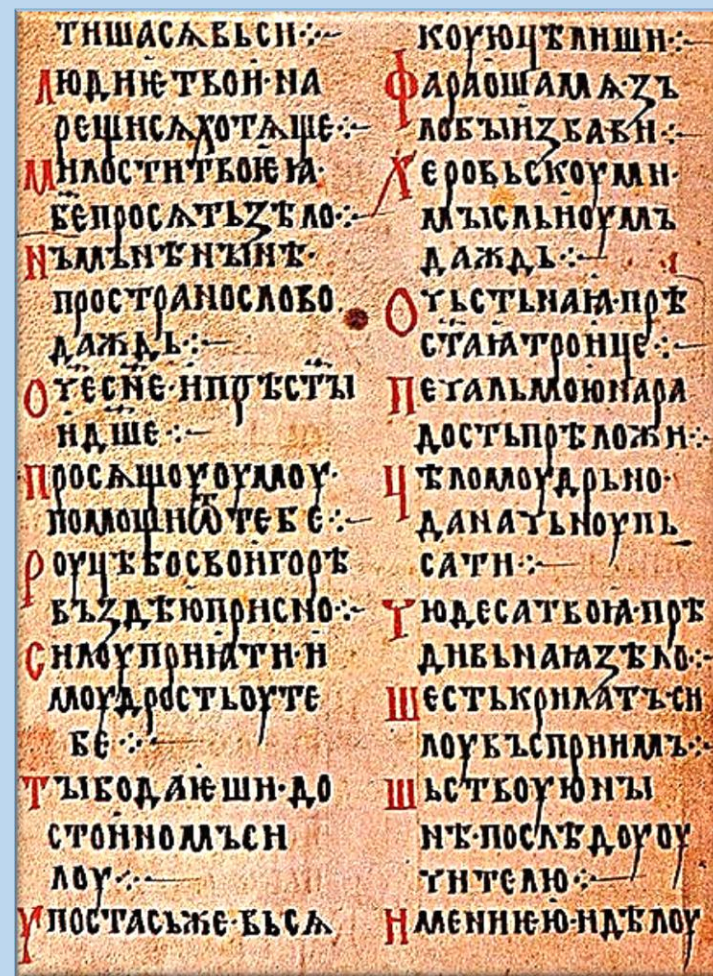 ТИШАСѦВЬСИ·:·—
ЛЮДИѤТВОИ·НА
РЕЩИСѦХОТѦЩЕ·:·—
МИЛОСТИТВОѤꙖ·
БЕПРОСѦТЬЗѢЛО·:·—
НЪМЪНѢНЪІНѢ·
ПРОСТРАНОСЛОВО
ДАЖДЬ·:·—
ОЧЕСН҃Е·ИПРѢСТЪІ
ИДШЕ·:·—
ПРОСѦЩОУОУМОУ·
ПОМОЩИѾТЕБЕ·:·—
РОУЦѢБОСВОИГОРѢ
ВЪЗДѢЮПРИСНО·:·—
СИЛОУПРИꙖТИ·И
МОУДРОСТЬОУТЕ
БЕ·:·—
ТЪІБОДАѤШИ·ДО
СТОИНОМЪСИ
ЛОУ·:·—
УПОСТАСЬЖЕ·ВЬСѦ
КОУЮЦѢЛИШИ·:·—
ФАРАОШАМѦ·ЗЪ
ЛОБЪІИЗБАВИ·:·—
ХЕРОВЬСКОУМИ·
МЪІСЛЬИОУМЪ
ДАЖДЬ·:·—
ОЧЬСТЬНАꙖ·ПРѢ
СТАꙖТРОИЦЕ·:·—
ПЕЧАЛЬМОЮНАРА
ДОСТЬПРѢЛОЖИ·:·—
ЦѢЛОМОУДРЬНО·
ДАНАЧЬНОУПЬ
САТИ·:·—
ЧЮДЕСАТВОꙖ·ПРѢ
ДИВЬНАꙖЗѢЛО·:·—
ШЕСТЬКРИЛАТЪСИ
ЛОУВЪСПРИИМЪ·:·—
ШЬСТВОУЮНЪІ
НѢ·ПОСЛѢДОУОУ
ЧИТЕЛЮ·:·—
ИМЕНИѤЮ·ИДѢЛОУ